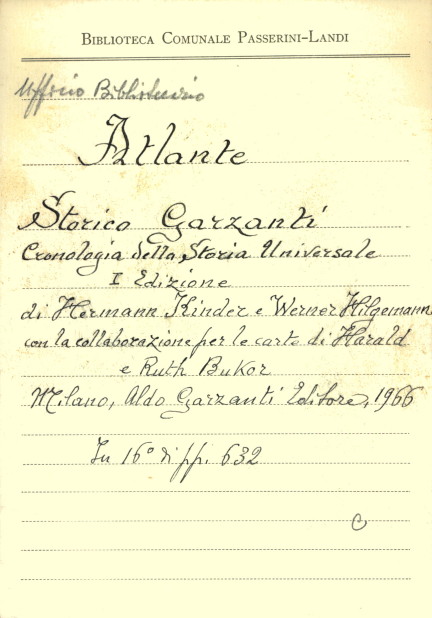 BIBLIOTECA COMUNALE PASSERINI-LANDI
Ufficio Bibliotecario
Atlante
Storico Garzanti
Cronologia della Storia Universale
I Edizione
di Hermann Kinder e Werner Hilgemann
con la collaborazione per le carte di Harald
e Ruth Bukor
Milano, Aldo Garzanti Editore, 1966
In 16° di pp. 632
C